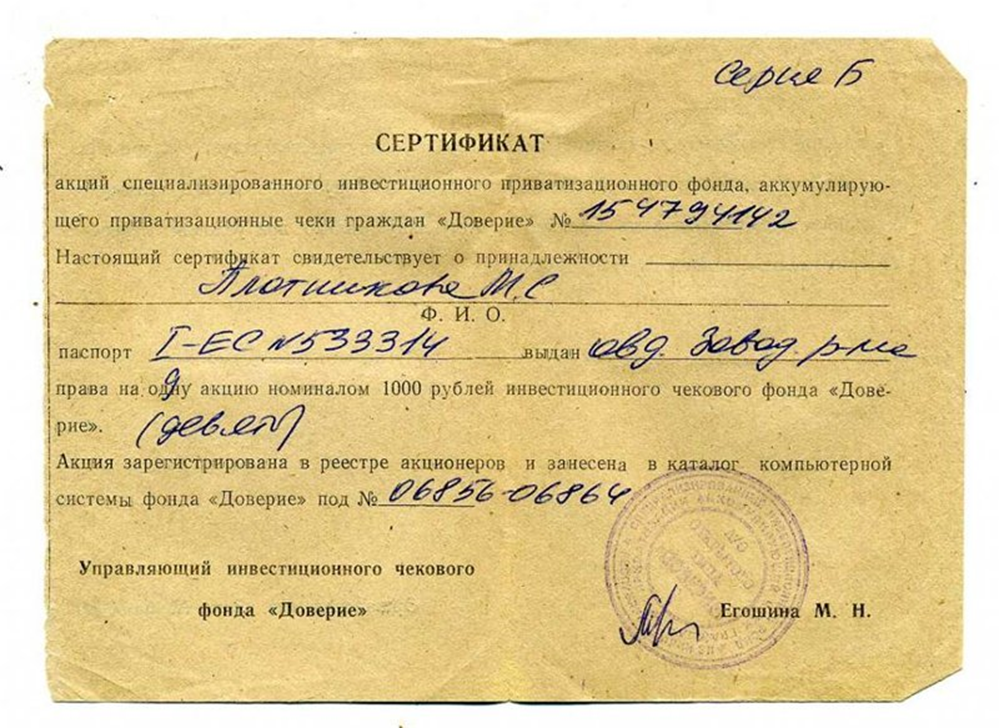 серия Б
СЕРТИФИКАТ
акций специализированного инвестиционного приватизационного фонда, аккумулирую-
щего приватизационные чеки граждан «Доверие» № 154794142
Настоящий сертификат свидетельствует о принадлежности
Плотникова М.С
Ф. И. О.
паспорт I-ЕС №533314 выдан овд. Завод. р-на
права на одну 9 акцию номиналом 1000 рублей инвестиционного чекового фонда «Дове-
рие». (девять)
Акция зарегистрирована в реестре акционеров и занесена в каталог компьютерной
системы фонда «Доверие» под № 06856-06864
Управляющий инвестиционного чекового
фонда «Доверие» Егошина М. Н.